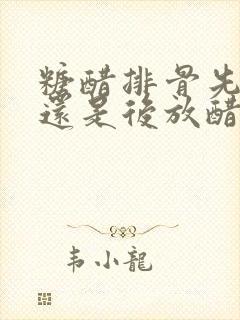 糖醋排骨先
還是後放醋
韦小龍